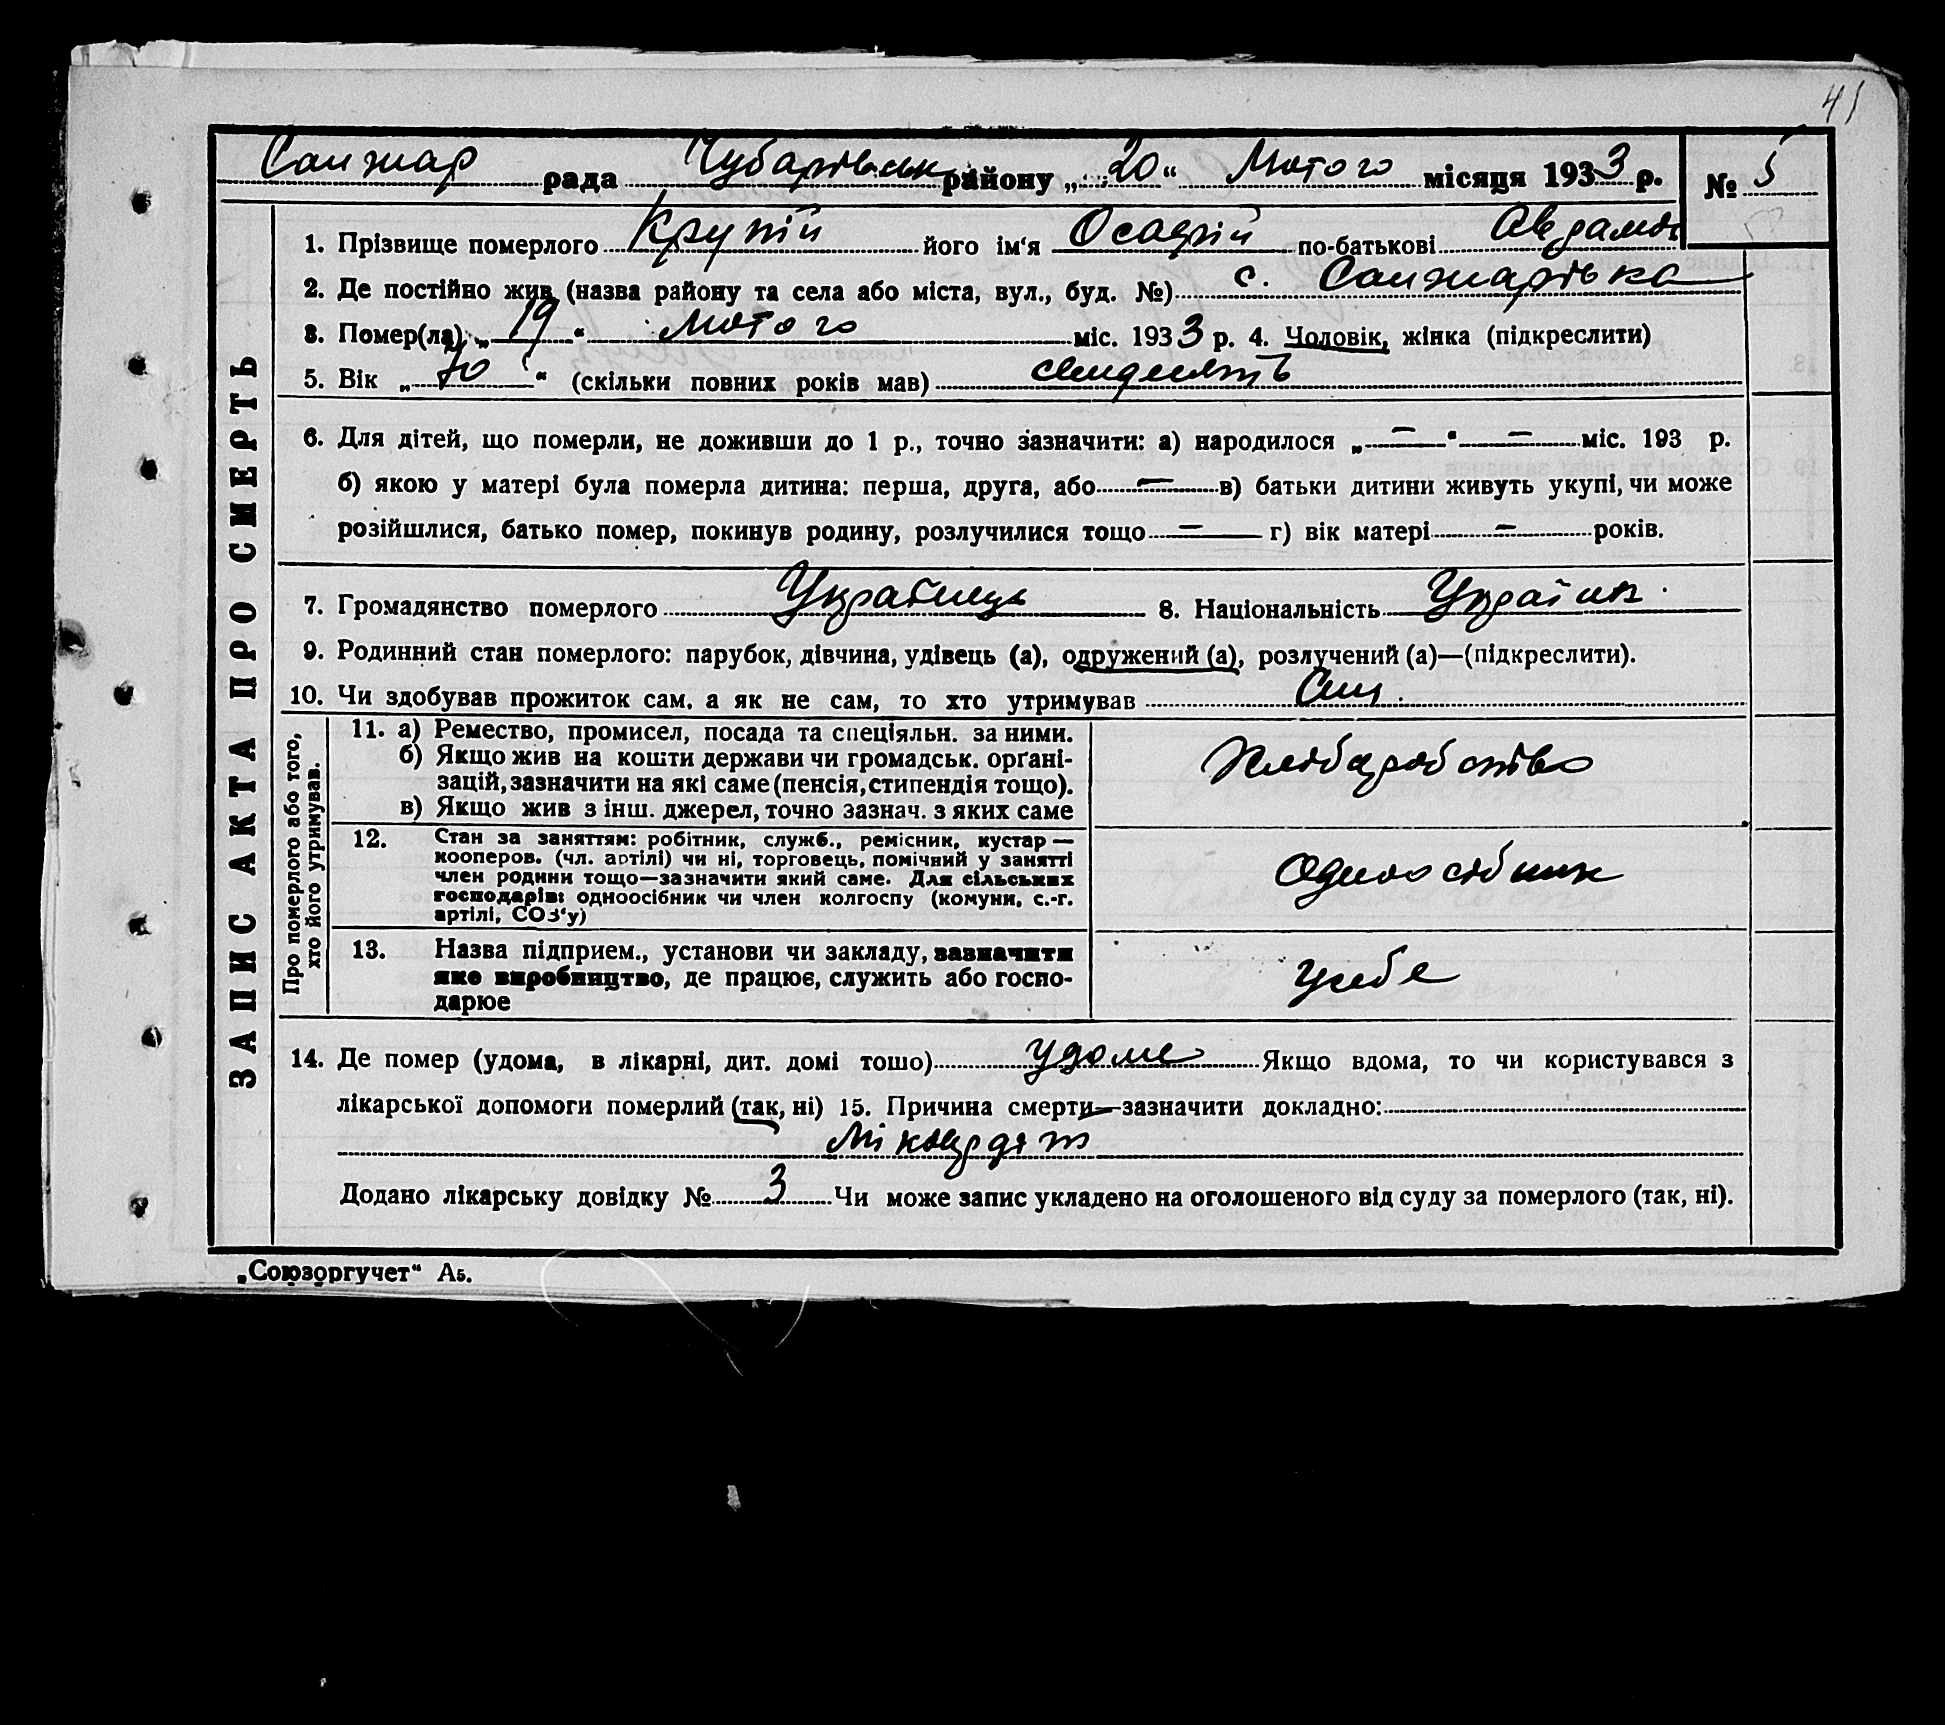 41
Санжар рада Чубарівськ району „20“ Лютого місяця 1933 р. № 5
1. Прізвище померлого Крупій його ім‘я Осафій по-батькові
2. Де постійно жив (назва району та села або міста, вул., буд. №) с. Санжарівка
3. Помер(ла) „19“ Лютого міс. 1933 р. 4. Чоловік, жінка (підкреслити)
5. Вік „70“ (скільки повних років мав) семдесять
6. Для дітей, що померли, не доживши до 1 р., точно зазначити: а) народилося „—“ — міс. 193 р.
б) якою у матері була померла дитина: перша, друга, або — в) батьки дитини живуть укупі, чи може
розійшлися, батько помер, покинув родину, розлучилися тощо — г) вік матері — років.
7. Громадянство померлого Українець 8. Національність Україн.
9. Родинний стан померлого: парубок, дівчина, удівець (а), одружений (а), розлучений (а)—(підкреслити).
10. Чи здобував прожиток сам, а як не сам, то хто утримував Сам.
ЗАПИС АКТА ПРО СМЕРТЬ
Про померлого або того,
хто його утримував.
11. а) Ремество, промисел, посада та спеціяльн. за ними.
б) Якщо жив на кошти держави чи громадськ. орґані-
зацій, зазначити на які саме (пенсія, стипендія тощо).
в) Якщо жив з інш. джерел, точно зазнач. з яких саме
Хліборобство
12. Стан за заняттям: робітник, служб., ремісник, кустар —
кооперов. (чл. артілі) чи ні, торговець, помічний у занятті
член родини тощо—зазначити який саме. Для сільських
господарів: одноосібник чи член колгоспу (комуни, с.-г.
артілі, СОЗ‘у)
Одноосібник
13. Назва підприєм., установи чи закладу, зазначити
яке виробництво, де працює, служить або госпо-
дарює
усебе
14. Де помер (удома, в лікарні, дит. домі тошо) удома Якщо вдома, то чи користувався з
лікарської допомоги померлий (так, ні) 15. Причина смерти—зазначити докладно:
Міокардит
Додано лікарську довідку № 3 Чи може запис укладено на оголошеного від суду за померлого (так, ні).
„Союзоргучет“ А5.